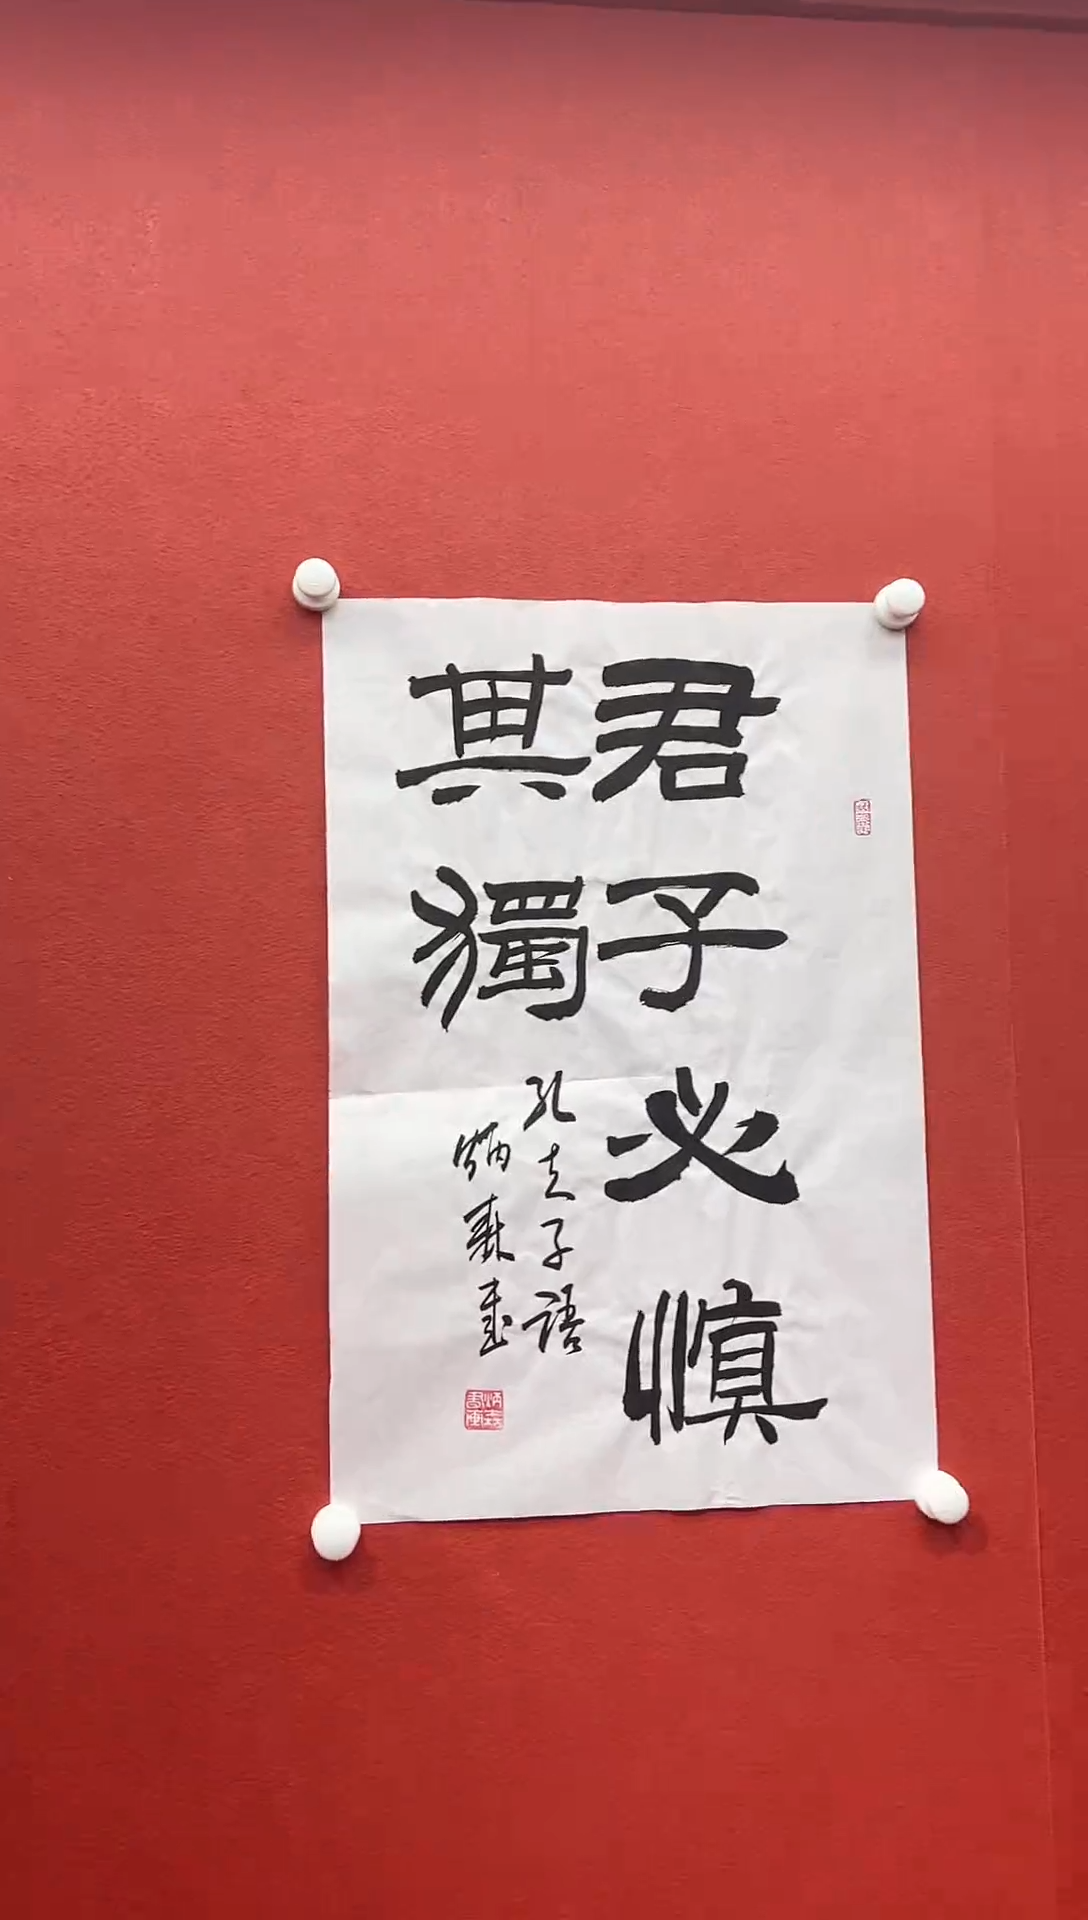 君子必慎
其獨
孔夫子語
炳森書